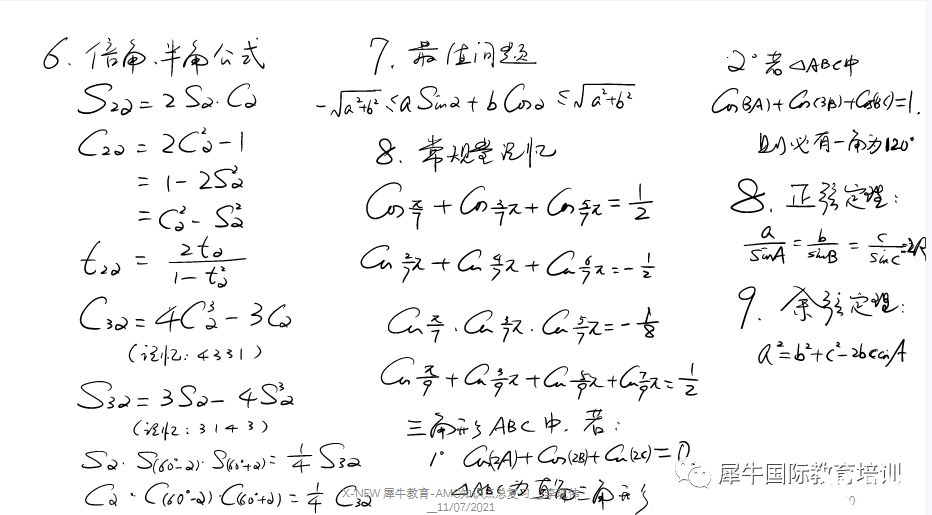 6. 倍角、半角公式
S2α = 2Sα·Cα
C2α = 2C²α - 1
= 1 - 2S²α
= C²α - S²α
t2α = 2tα / 1 - t²α
C3α = 4C³α - 3Cα
(记忆: 4331)
S3α = 3Sα - 4S³α
(记忆: 3143)
Sα · S(60°-α) · S(60°+α) = 1/4 S3α
Cα · C(60°-α) · C(60°+α) = 1/4 C3α
7. 最值问题
-√a²+b² ≤ a Sinα + b Cosα ≤ √a²+b²
8. 常规需记忆
Cos π/7 + Cos 3/7 π + Cos 5/7 π = 1/2
Cos 2/7 π + Cos 4/7 π + Cos 6/7 π = - 1/2
Cos π/7 · Cos 3/7 π · Cos 5/7 π = - 1/8
Cos π/9 + Cos 3/9 π + Cos 5/9 π + Cos 7/9 π = 1/2
三角形ABC中, 若:
1° Cos(2A) + Cos(2B) + Cos(2C) = 0
△ABC为直角三角形
2° 若△ABC中
Cos(3A) + Cos(3B) + Cos(3C) = 1.
则必有一角为120°
8. 正弦定理:
a/sinA = b/sinB = c/sinC = 2R
9. 余弦定理:
a² = b² + c² - 2bccosA
犀牛国际教育培训
X-NEW 犀牛教育-AMC知识点总复习
_11/07/2021
9